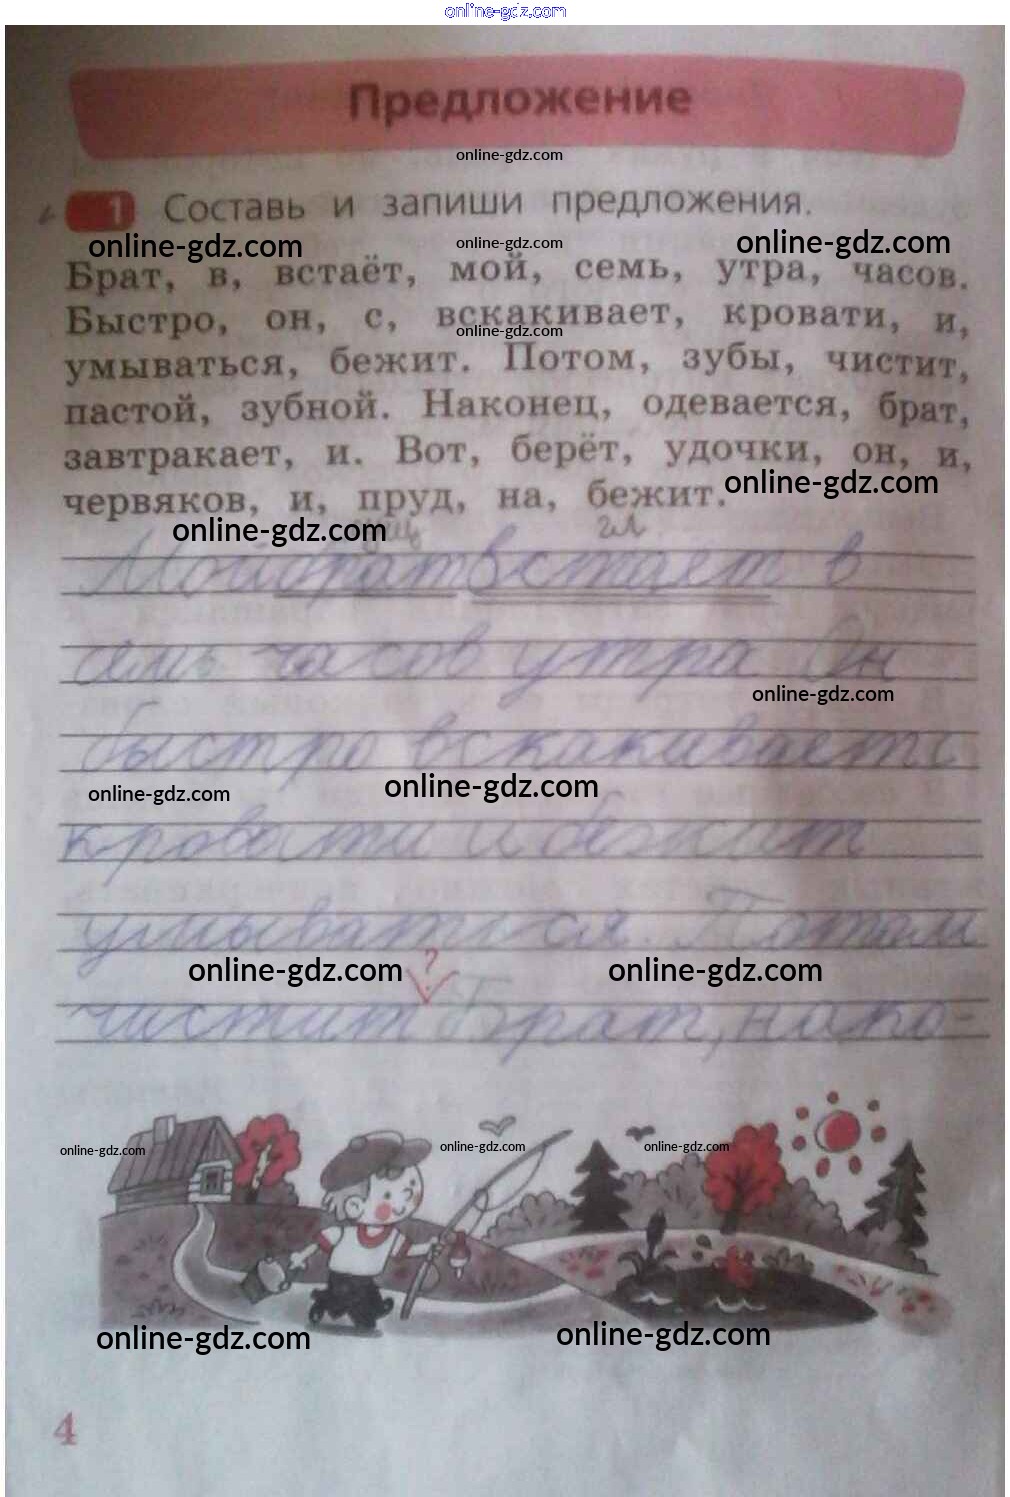 online-gdz.com
Предложение
online-gdz.com
1 Составь и запиши предложения.
online-gdz.com online-gdz.com online-gdz.com
Брат, в, встаёт, мой, семь, утра, часов.
Быстро, он, с, вскакивает, кровати, и,
online-gdz.com
умываться, бежит. Потом, зубы, чистит,
пастой, зубной. Наконец, одевается, брат,
завтракает, и. Вот, берёт, удочки, он, и,
online-gdz.com
червяков, и, пруд, на, бежит.
online-gdz.com
сущ гл
Мой брат встает в
семь часов утра Он
online-gdz.com
быстро вскакивает с
online-gdz.com online-gdz.com
кровати и бежит
умываться. Потом
online-gdz.com ? online-gdz.com
чистит Брат, нако-
online-gdz.com online-gdz.com online-gdz.com
online-gdz.com online-gdz.com
4